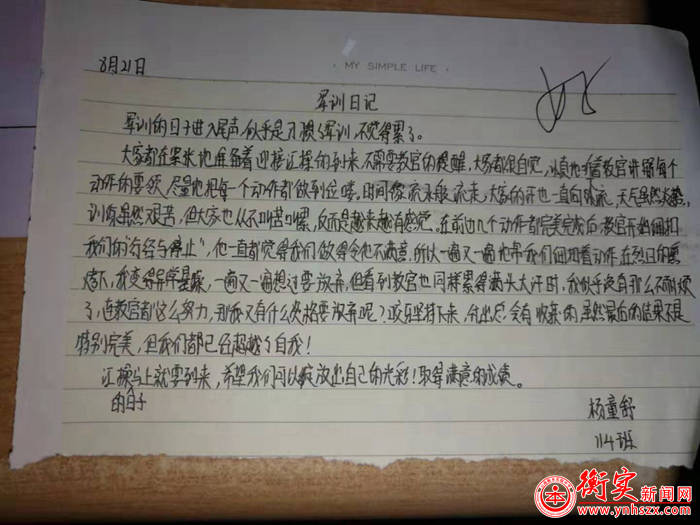 · MY SIMPLE LIFE ·
8月21日
军训日记
军训的日子进入尾声,似乎是习惯了军训,不觉得累了。
大家都在紧张地准备着迎接汇操的到来,不需要教官的提醒,大家都很自觉,认真地听着教官讲解每个
动作的要领,尽量地把每个动作都做到位喽。时间像流水般流走,大家的汗也一直向外流,天气虽然炎热,
训练虽然艰苦,但大家也从不叫苦叫累,反而是越来越有感觉。在前边几个动作都完美完成后,教官开始
我们的"行径与停止",他一直都觉得我们做得令他不满意,所以一遍又一遍地带我们细抠着动作,在烈日的
烤下,我变得异常急躁,一遍又一遍想过要放弃,但看到教官也同样累得满头大汗时,我似乎没有那么不耐烦
了,连教官都这么努力,那我又有什么资格要放弃呢?咬牙坚持下来,付出总会有收获的,虽然最后的结果不是
特别完美,但我们都已经超越了自我!
汇操马上就要到来,希望我们可以绽放出自己的光彩!取得满意的成绩。
的日子
杨童舒
114班
衡实新闻网
www.ynhszx.com